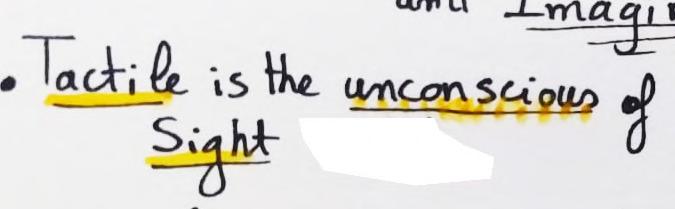 Imagin
• Tactile is the unconscious of
Sight